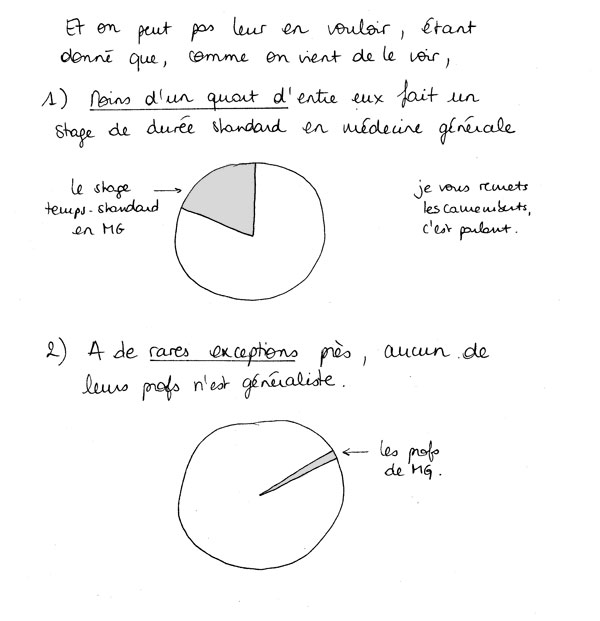 Et on peut pas leur en vouloir, étant
donné que, comme on vient de le voir,
1) Moins d'un quart d'entre eux fait un
stage de durée standard en médecine générale
le stage
temps-standard
en MG
je vous remets
les camemberts,
c'est parlant.
2) A de rares exceptions près, aucun de
leurs profs n'est généraliste.
les profs
de MG.